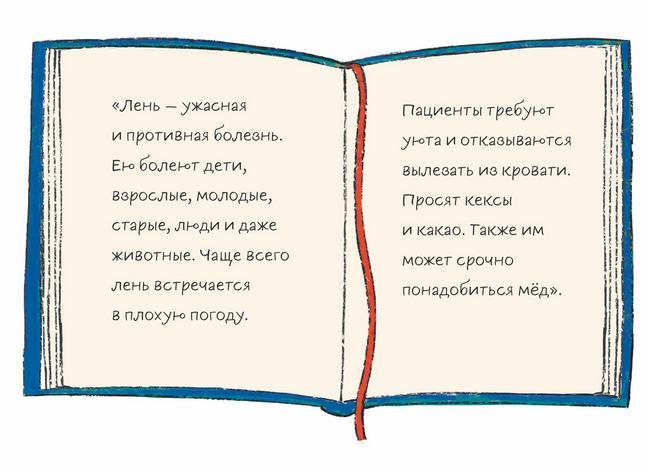 «Лень – ужасная
и противная болезнь.
Ею болеют дети,
взрослые, молодые,
старые, люди и даже
животные. Чаще всего
лень встречается
в плохую погоду.
Пациенты требуют
уюта и отказываются
вылезать из кровати.
Просят кексы
и какао. Также им
может срочно
понадобиться мёд».